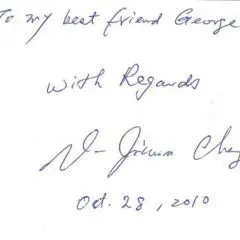 To my best friend George
with Regards
Oct. 28, 2010